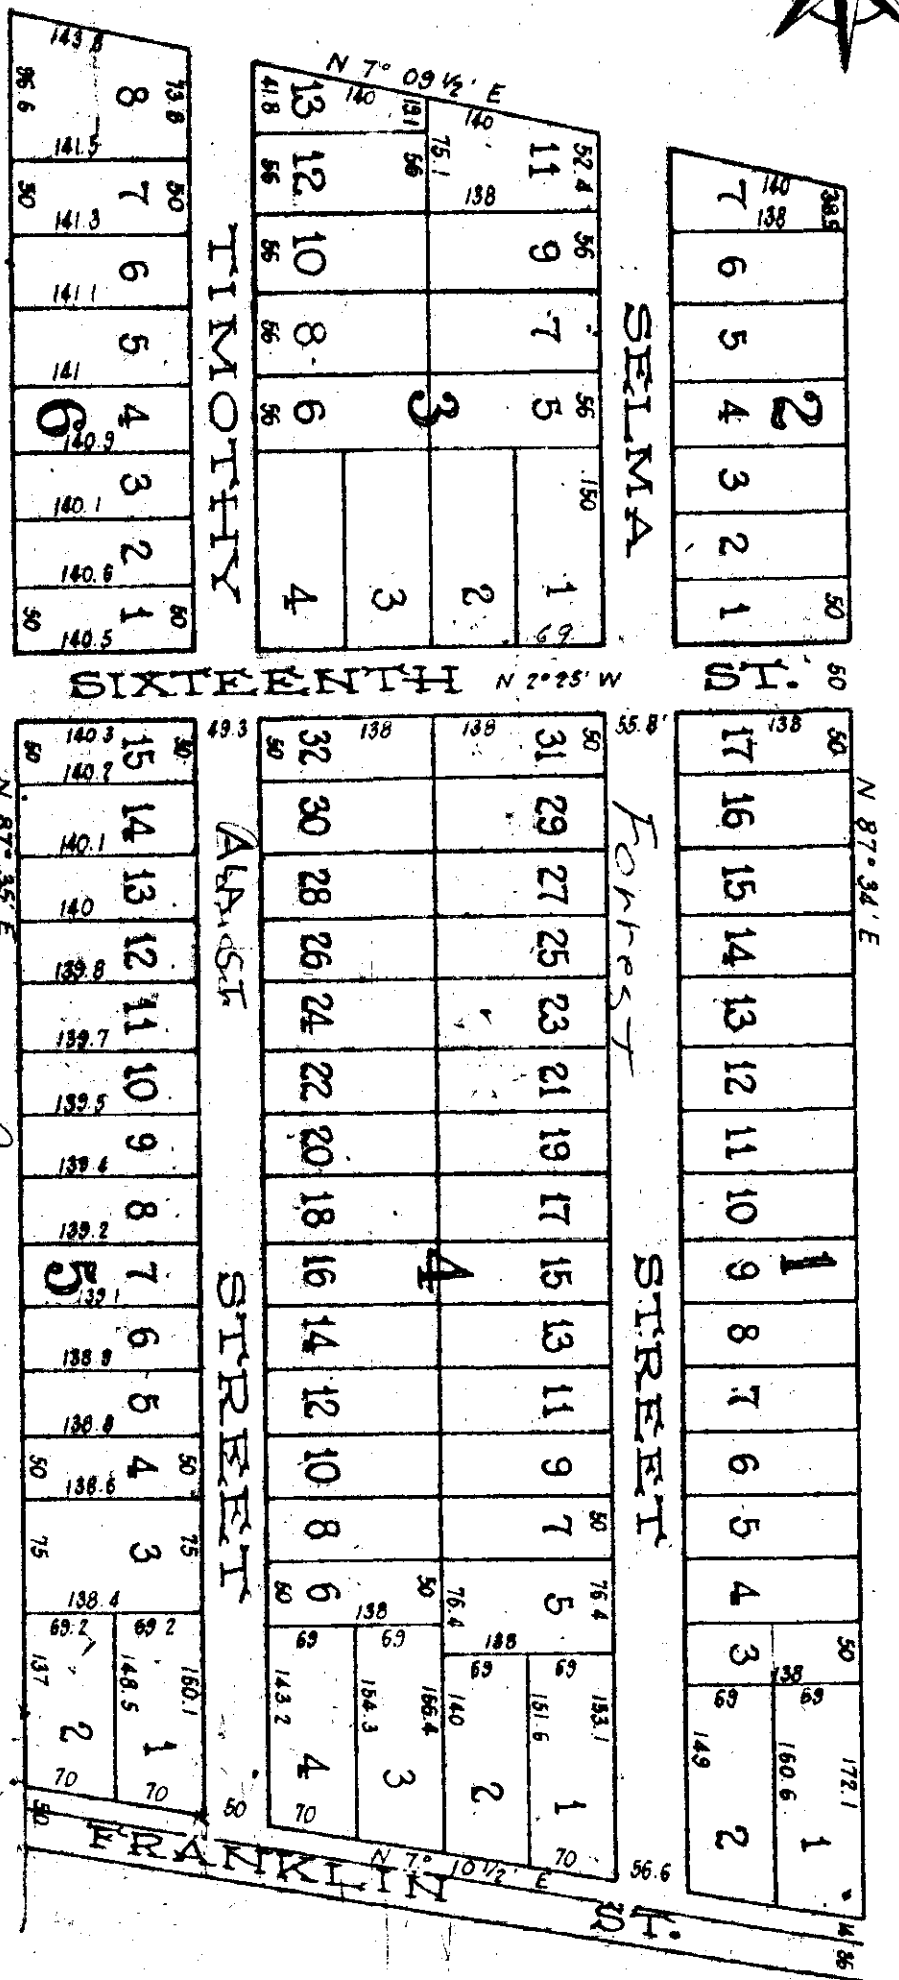 143.8
95.6
8
73.8
141.5
50
7
50
141.3
6
141.1
5
141
6
4
140.9
3
140.1
2
140.6
50
1
50
140.5
TIMOTHY
N 7° 09 ½' E
41.8
13
140
19.1
140
75.1
11
52.4
56
12
56
138
56
10
9
56
56
8
7
56
6
3
5
56
150
4
3
2
1
69
SELMA
140
38.5
7
138
6
5
4
2
3
2
1
50
SIXTEENTH N 2° 25' W ST. 50
140.3
50
15
50
140.2
14
140.1
13
140
12
139.8
11
139.7
10
139.5
9
139.4
8
139.2
5
7
139.1
6
138.9
5
138.8
50
4
50
138.6
75
3
75
138.4
69.2
69.2
137
148.5
150.1
2
1
70
70
N 87° 35' E
49.3
STREET
50
50
32
138
138
31
50
30
29
28
27
26
25
24
23
22
21
20
19
18
17
16
4
15
14
13
12
11
10
9
8
7
50
50
6
50
76.4
5
76.4
138
138
69
69
69
69
143.2
154.3
166.4
140
151.6
153.1
4
3
2
1
70
70
55.8'
Forrest
STREET
56.6
17
138
50
16
15
14
13
12
11
10
9
1
8
7
6
5
4
3
50
138
69
69
149
160.6
172.1
2
1
N 87° 34' E
50
FRANKLIN N 7° 10 ½' E ST.
14
36